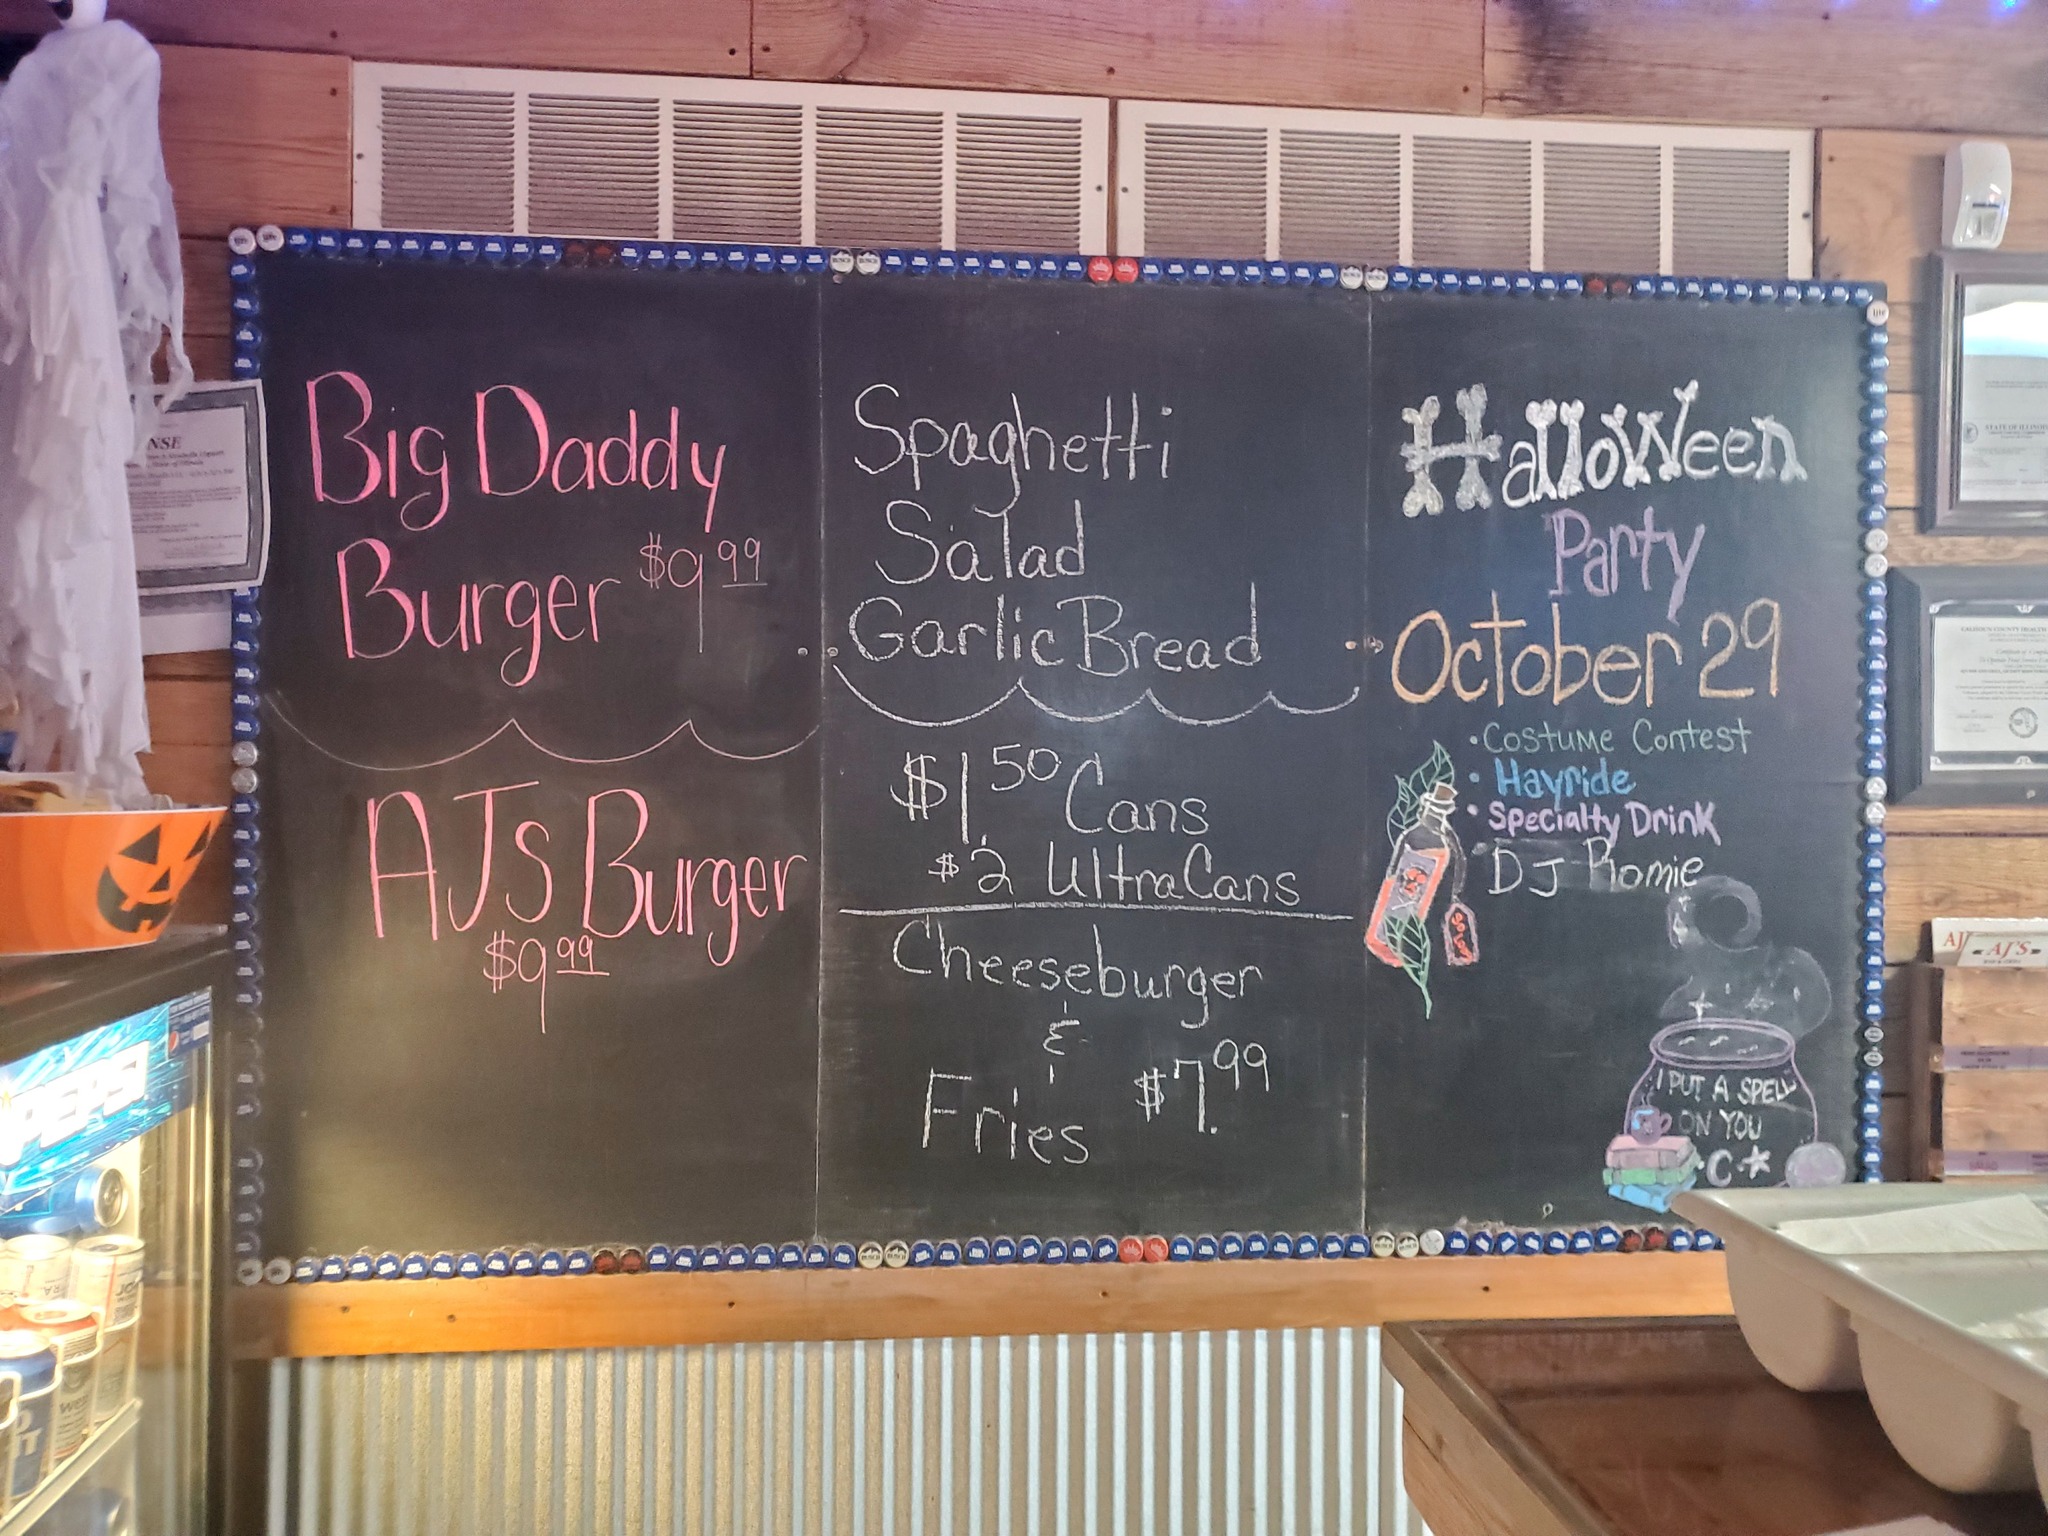 Big Daddy
Burger $9.99
AJs Burger
$9.99
Spaghetti
Salad
Garlic Bread
$1.50 Cans
$2 Ultra Cans
Cheeseburger
&
Fries $7.99
Halloween
Party
October 29
• Costume Contest
• Hayride
• Specialty Drink
DJ Romie
I PUT A SPELL
ON YOU
NSE
STATE OF ILLINOIS
CALHOUN COUNTY HEALTH
AJ'S
PEPSI